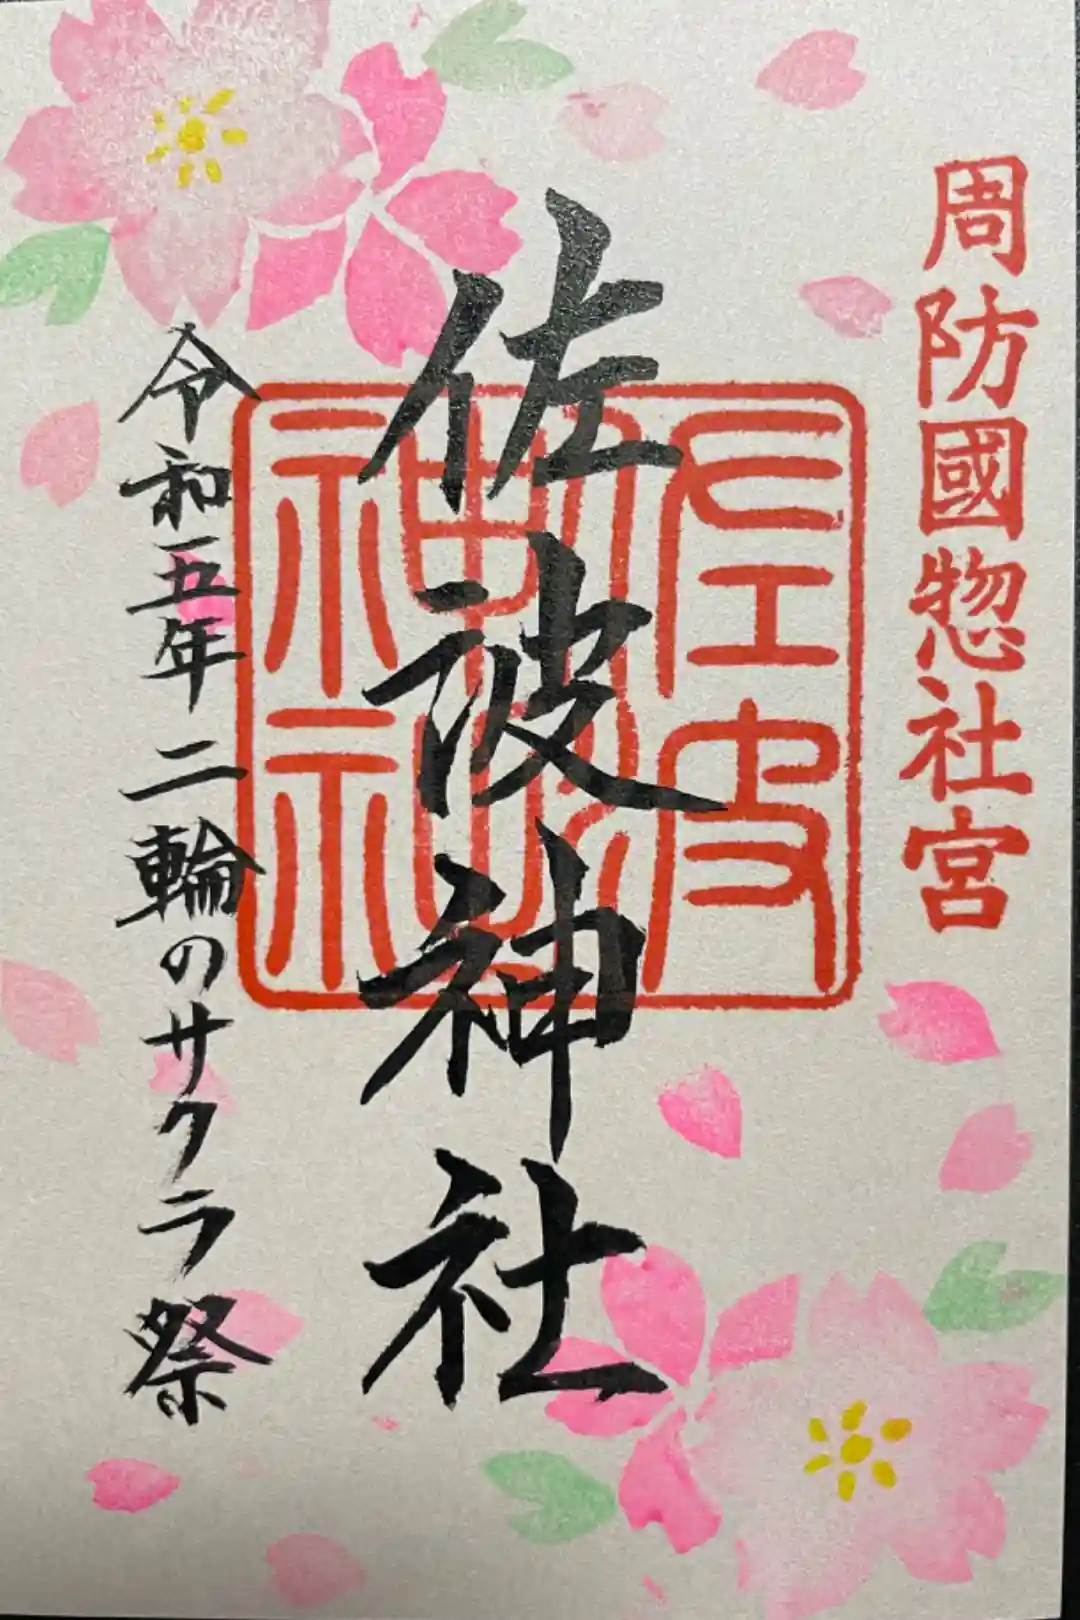 周防國惣社宮
佐波神社
佐波神社
令和五年 二輪のサクラ祭